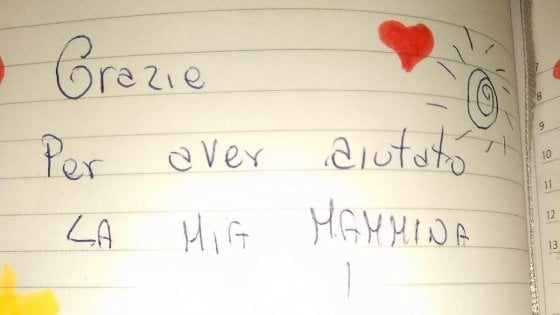 Grazie
Per aver aiutato
LA MIA MAMMINA
8
9
10
11
12
13